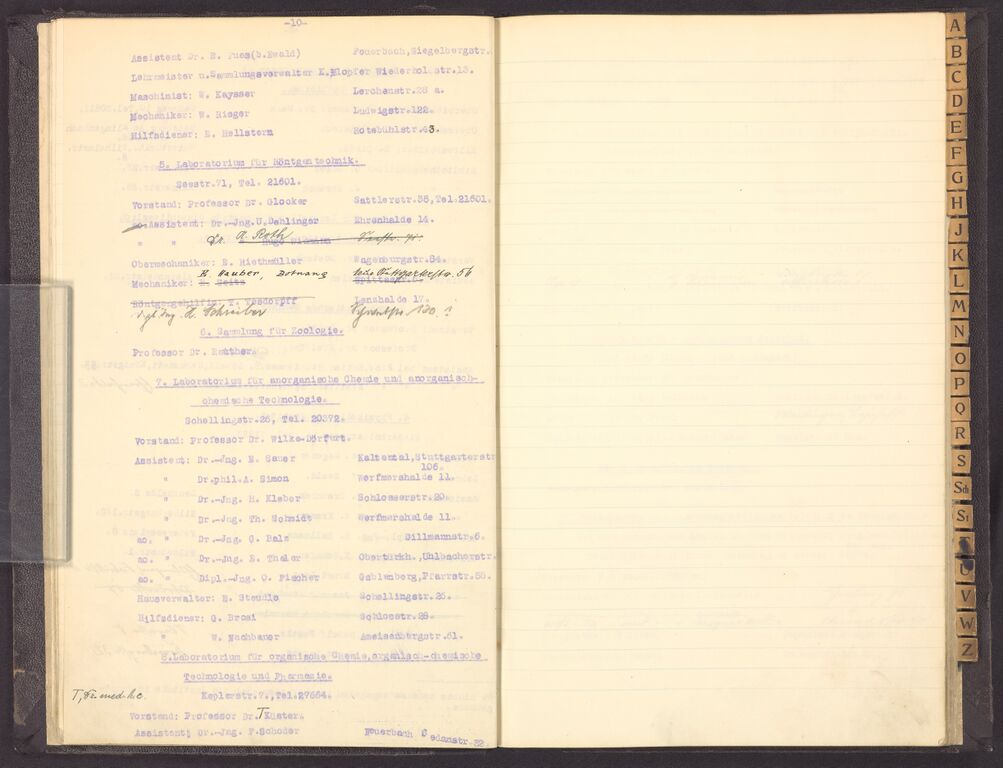 -10-
Assistent Dr. E. Fues (b.Ewald) Feuerbach, Siegelbergstr.
Lehrmeister u.Sammlungsverwalter K.Klopfer Wiederholdstr.13.
Maschinist: W. Kaysser Lerchenstr.28 a.
Mechaniker: W. Rieger Ludwigstr.122.
Hilfsdiener: E. Hellstern Rotebühlstr.63.
5. Laboratorium für Röntgentechnik.
Seestr.71, Tel. 21601.
Vorstand: Professor Dr. Glocker Sattlerstr.35,Tel.21601.
ao.Assistent: Dr.-Jng.U.Dehlinger Ehrenhalde 14.
" " Dr. A. Roth
Hugo Widmann
Obermechaniker: E. Riethmüller Wagenburgstr.84.
B. Hauber, Botnang 56
Mechaniker:
Röntgengehilfin: T. Wesdorpff Lenzhalde 17.
H. Schreiber 130 ?
6. Sammlung für Zoologie.
Professor Dr. Rauther.
7. Laboratorium für anorganische Chemie und anorganisch-
chemische Technologie.
Schellingstr.26, Tel. 20372.
Vorstand: Professor Dr. Wilke-Dörfurt.
Assistent: Dr.-Jng. E. Sauer Kaltental,Stuttgarterstr
106.
" Dr.phil.A. Simon Werfmershalde 11.
" Dr.-Jng. H. Kleber Schlosserstr.20.
" Dr.-Jng. Th. Schmidt Werfmershalde 11.
ao. " Dr.-Jng. G. Balz Sillmannstr.6.
ao. " Dr.-Jng. E. Thaler Obertürkh.,Uhlbacherstr.
ao. " Dipl.-Jng. O. Fischer Gablenberg,Pfarrstr.
Hausverwalter: E. Steudle Schellingstr.26.
Hilfsdiener: G. Brosi Schlosstr.28.
" W. Nachbauer Ameisenbergstr.61.
8.Laboratorium für organische Chemie,organisch-chemische
Technologie und Pharmazie.
Keplerstr.7.,Tel.27664.
T, Dr. med. h.c.
Vorstand: Professor Dr.TKüster.
Assistent: Dr.-Jng. F.Schoder Feuerbach Sedanstr.32.
A
B
C
D
E
F
G
H
J
K
L
M
N
O
P
Q
R
S
Sch
St
T
U
V
W
Z